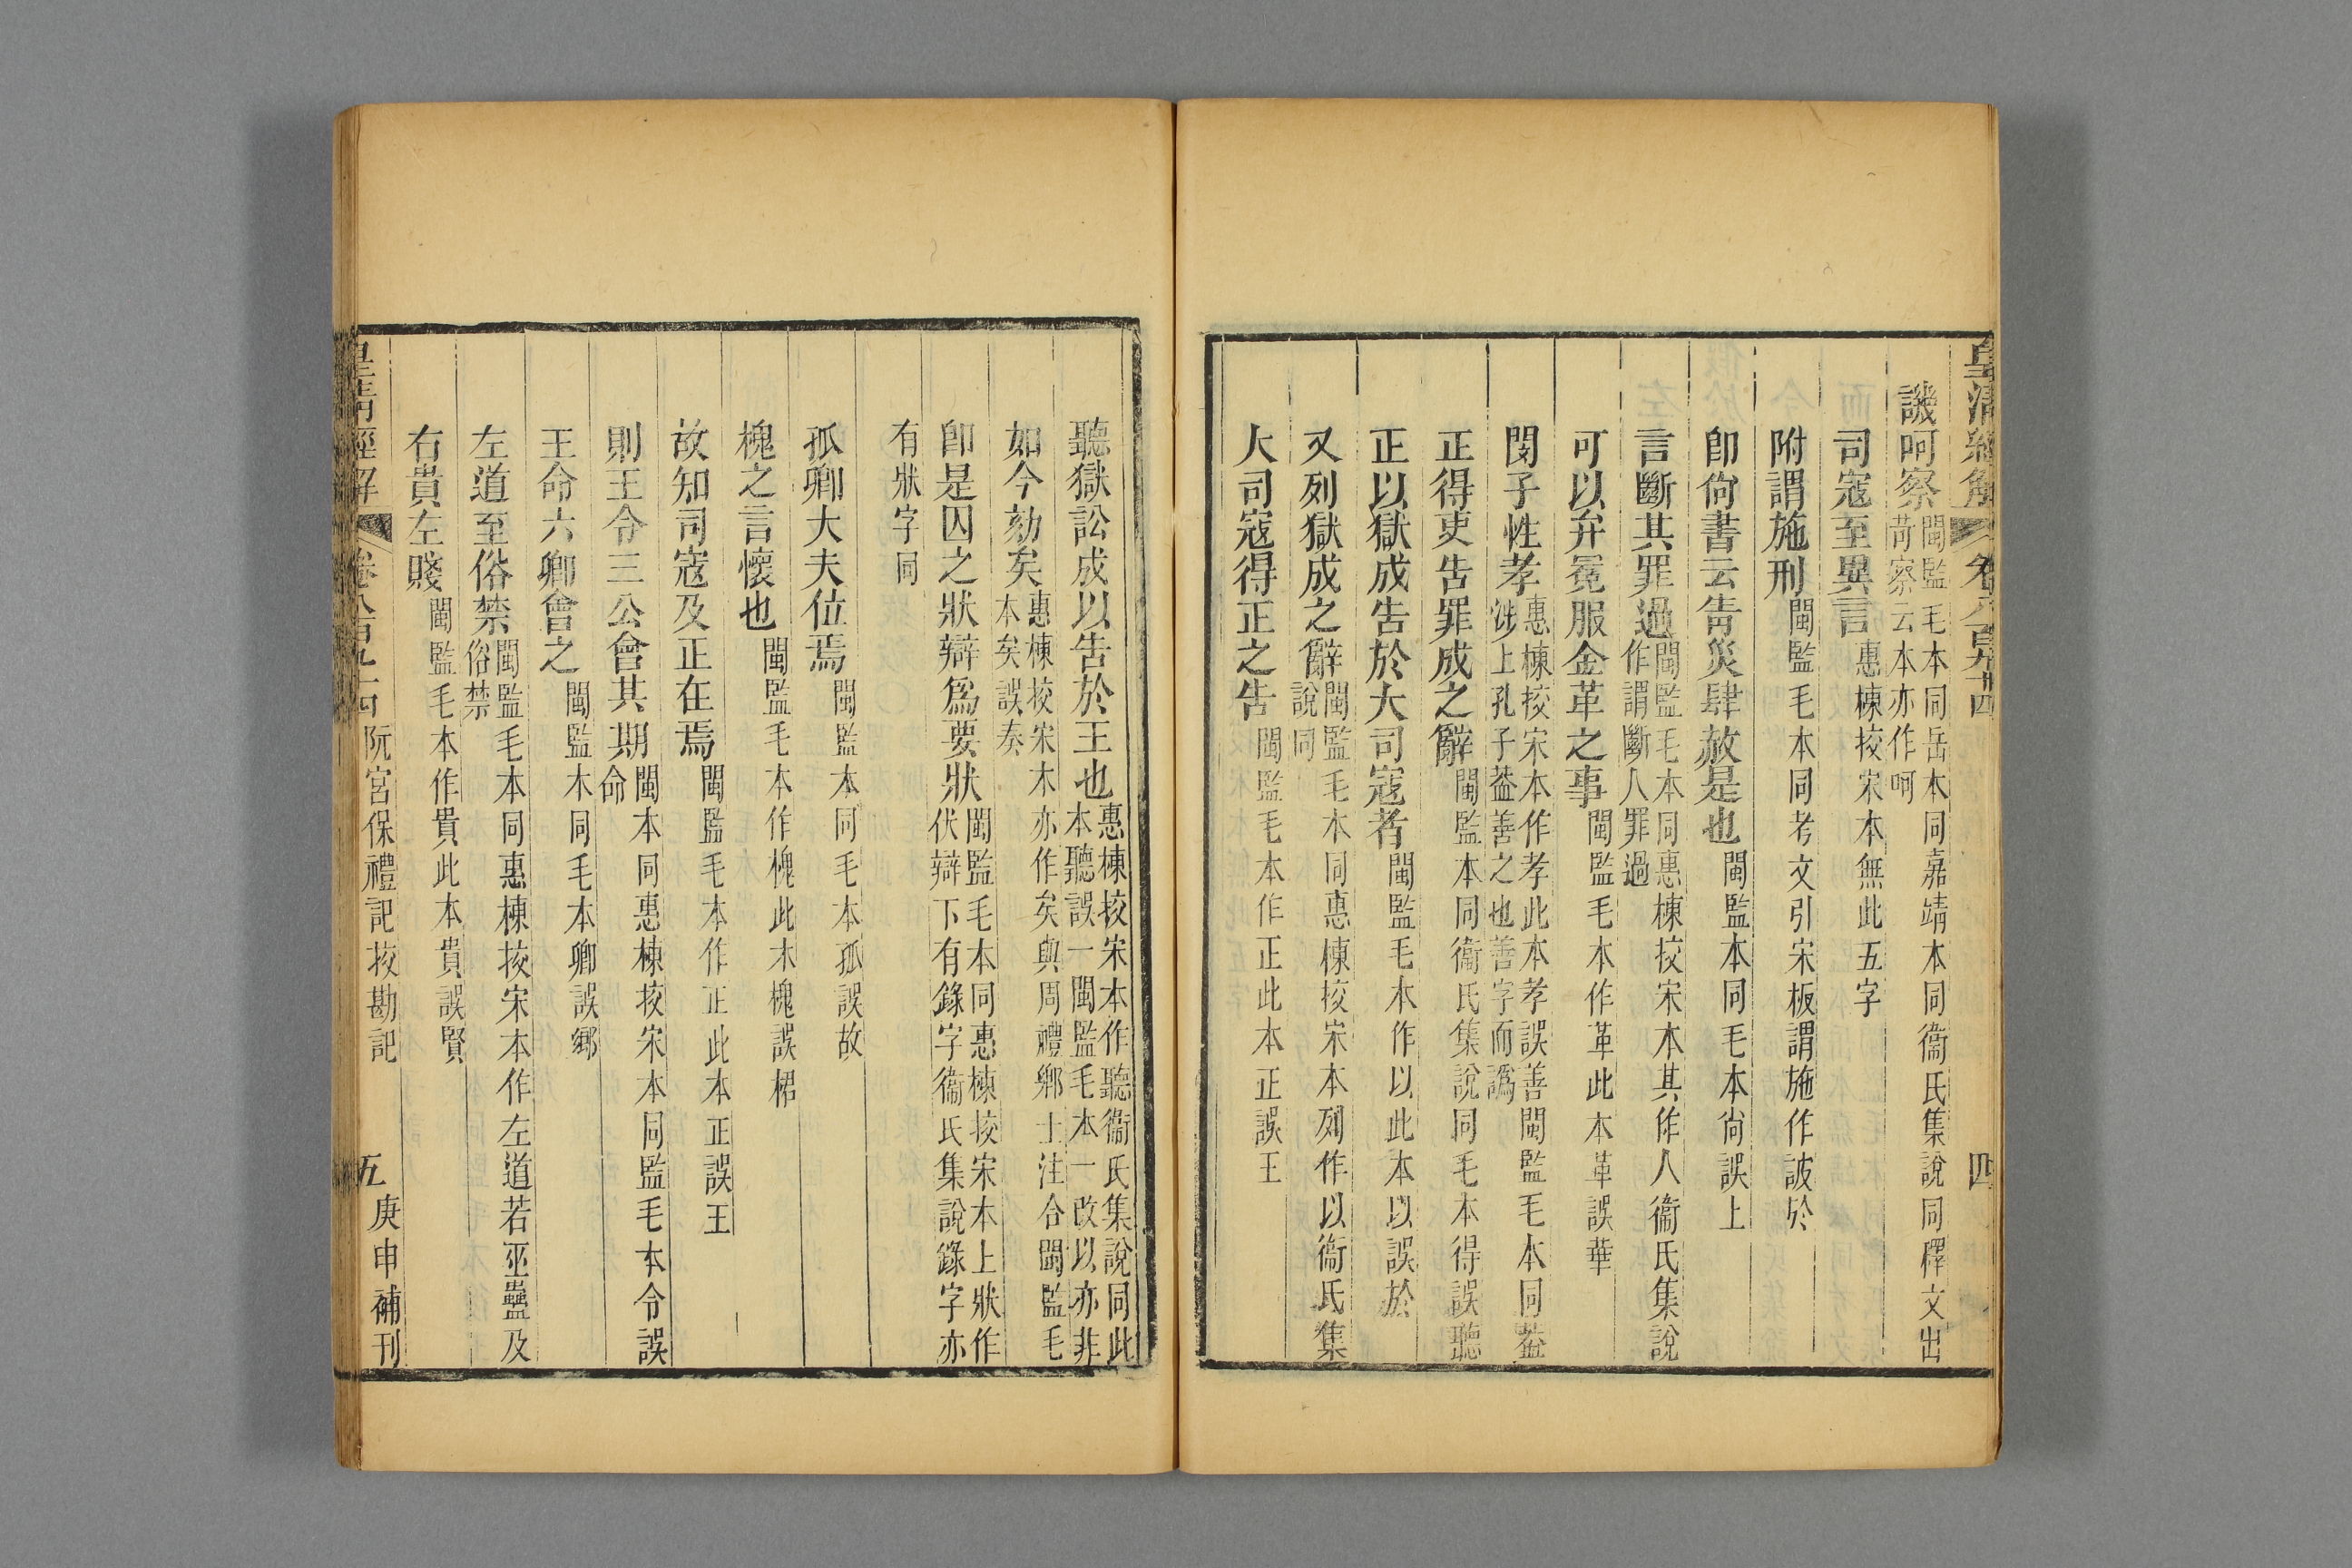 皇清經解 卷八百九十四 四
譏呵察 閩監毛本同岳本同嘉靖本同衞氏集說同釋文出
苛察云本亦作呵
司寇至異言 惠棟挍宋本無此五字
附謂施刑 閩監毛本同考文引宋板謂施作詖於
卽尙書云眚災肆赦是也 閩監本同毛本尙誤上
言斷其罪過 閩監毛本同惠棟挍宋本其作人衞氏集說
作謂斷人罪過
可以弁冕服金革之事 閩監毛本作革此本革誤華
閔子性孝 惠棟挍宋本作孝此本孝誤善閩監毛本同葢
涉上孔子葢善之也善字而譌
正得吏告罪成之辭 閩監本同衞氏集說同毛本得誤聽
正以獄成告於大司寇者 閩監毛本作以此本以誤於
又列獄成之辭 閩監毛本同惠棟挍宋本列作以衞氏集
說同
大司寇得正之告 閩監毛本作正此本正誤王
聽獄訟成以告於王也 惠棟挍宋本作聽衞氏集說同此
本聽誤一閩監毛本一改以亦非
如今劾矣 惠棟挍宋本亦作矣與周禮鄉士注合閩監毛
本矣誤奏
卽是囚之狀辯爲要狀 閩監毛本同惠棟挍宋本上狀作
伏辯下有錄字衞氏集說錄字亦
有狀字同
孤卿大夫位焉 閩監本同毛本孤誤故
槐之言懷也 閩監毛本作槐此本槐誤桾
故知司寇及正在焉 閩監毛本作正此本正誤王
則王令三公會其期 閩本同惠棟挍宋本同監毛本令誤
命
王命六卿會之 閩監本同毛本卿誤鄉
左道至俗禁 閩監毛本同惠棟挍宋本作左道若巫蠱及
俗禁
右貴左賤 閩監毛本作貴此本貴誤賢
皇清經解 卷八百九十四 阮宮保禮記挍勘記 五 庚申補刊